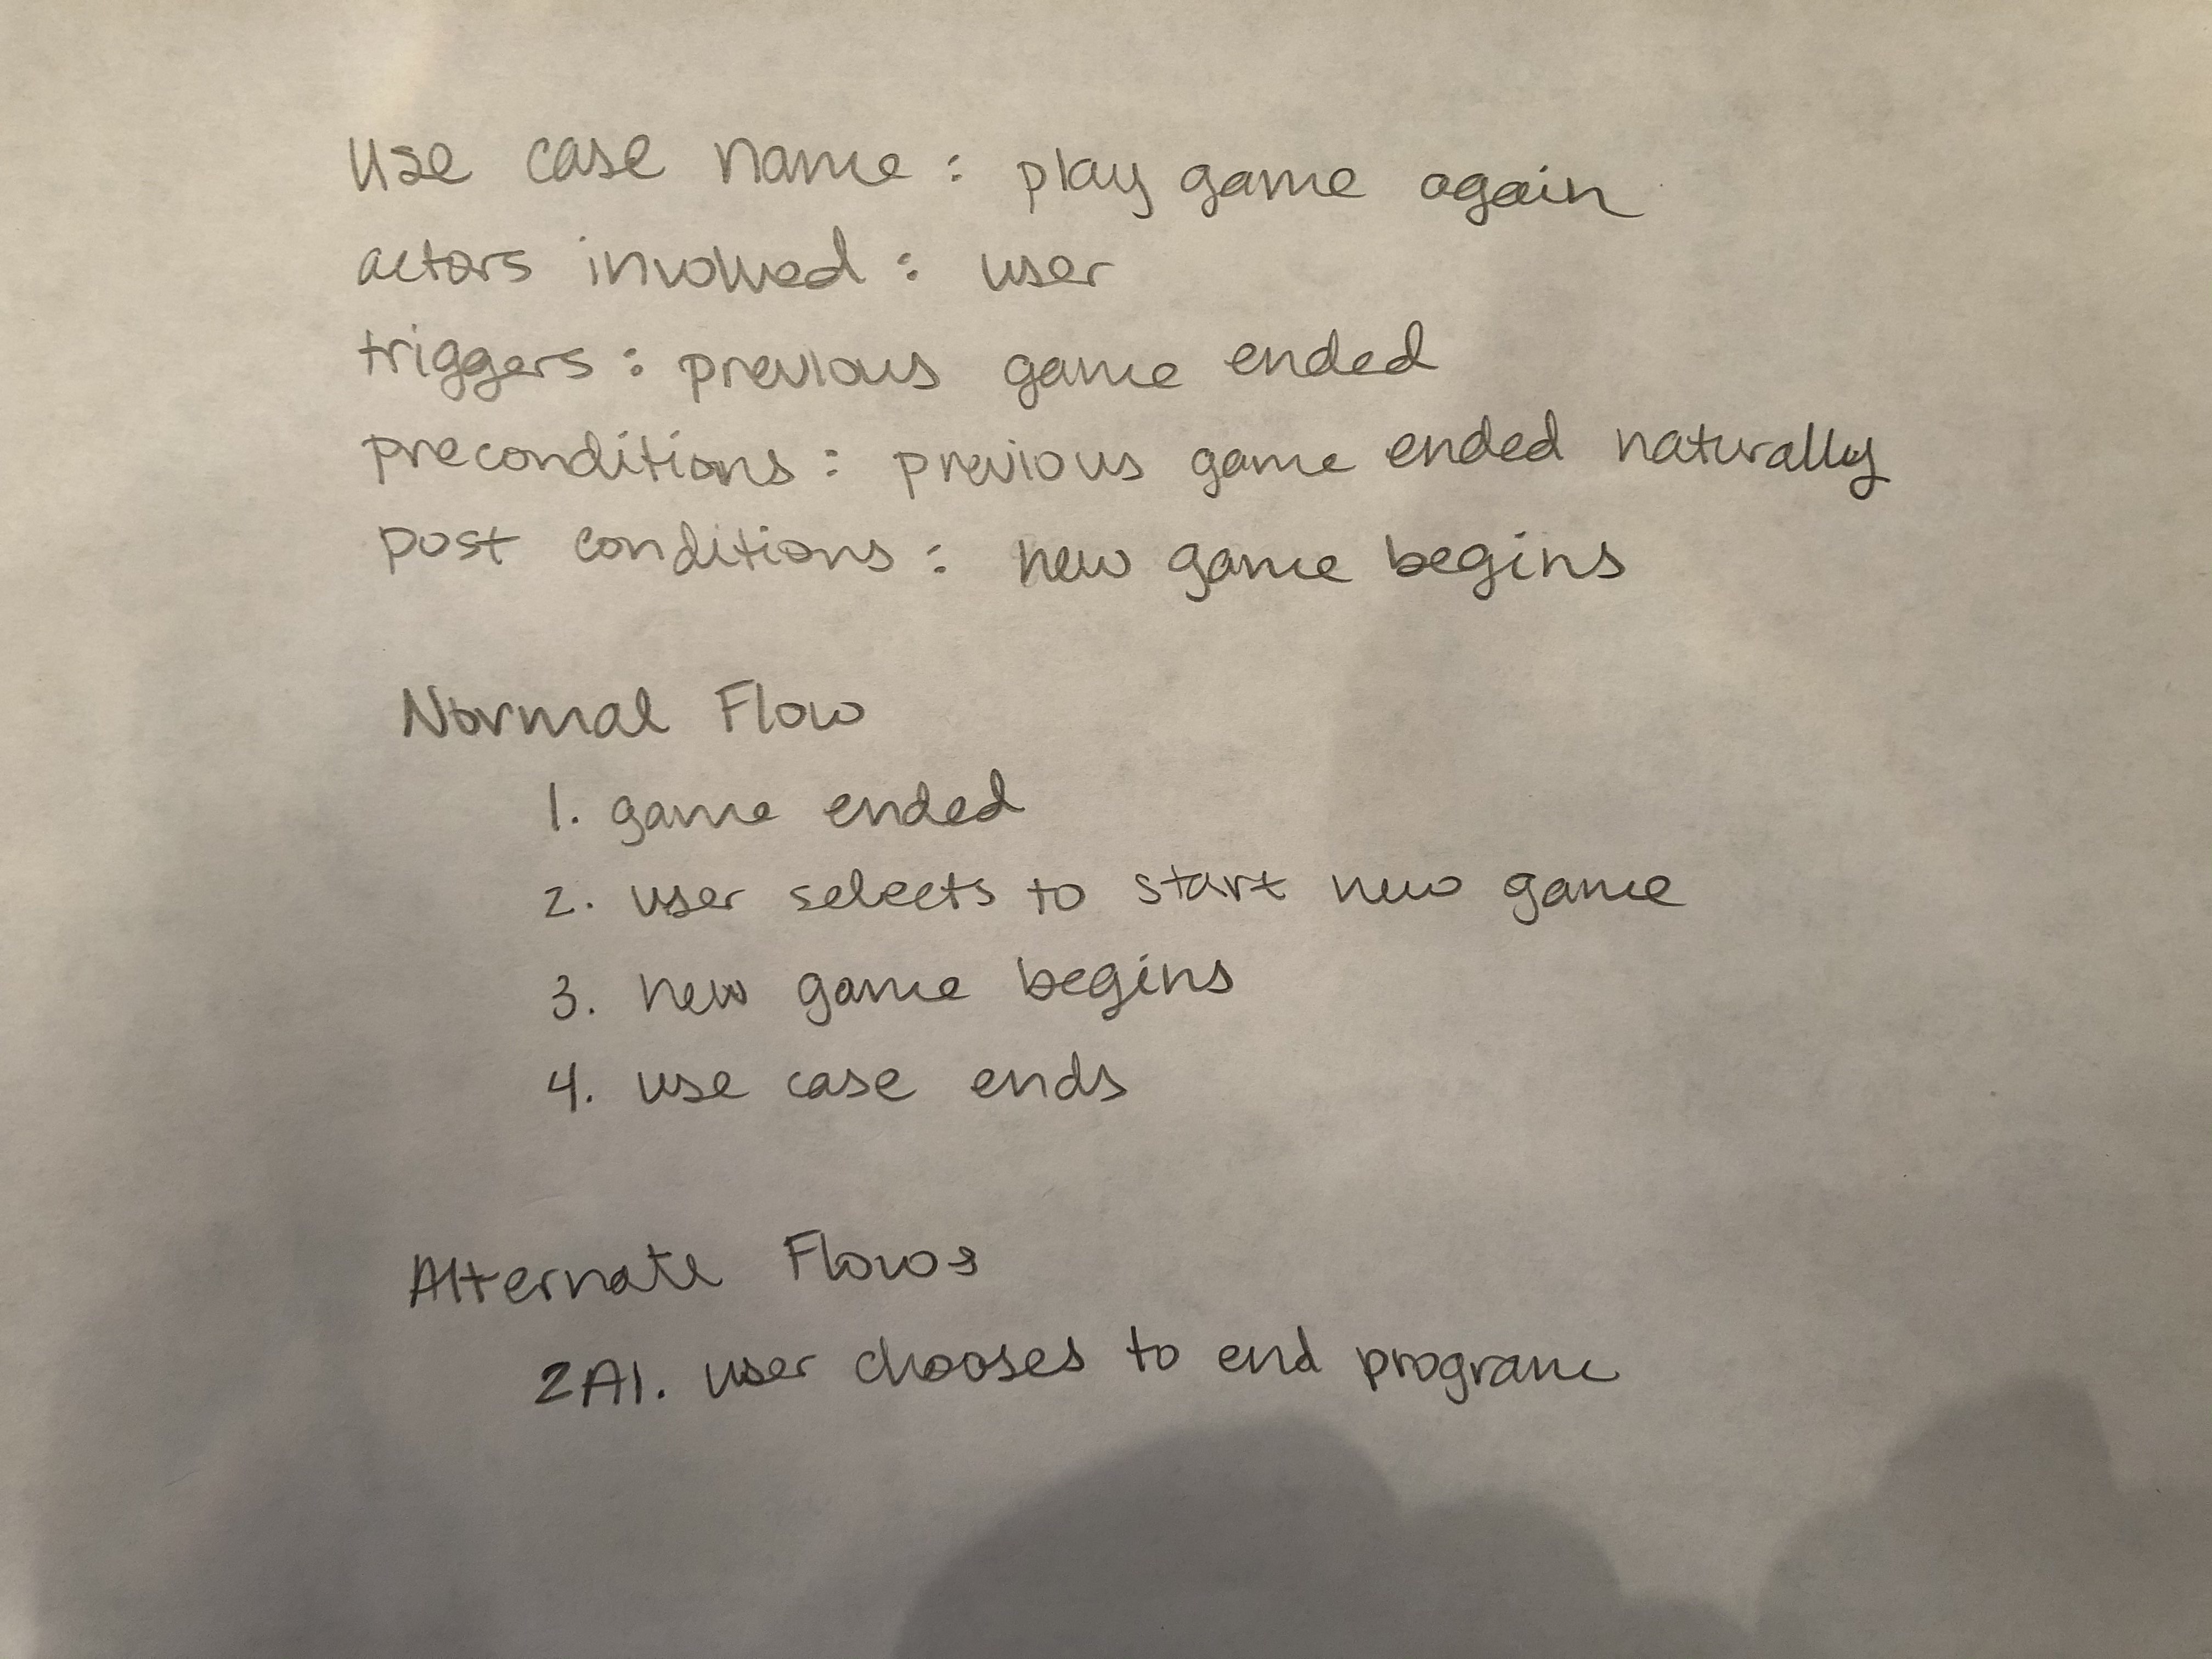 Use case name : play game again
actors involved : user
triggers : previous game ended
preconditions : previous game ended naturally
post conditions : new game begins
Normal Flow
1. game ended
2. user selects to start new game
3. new game begins
4. use case ends
Alternate Flows
2A1. user chooses to end program